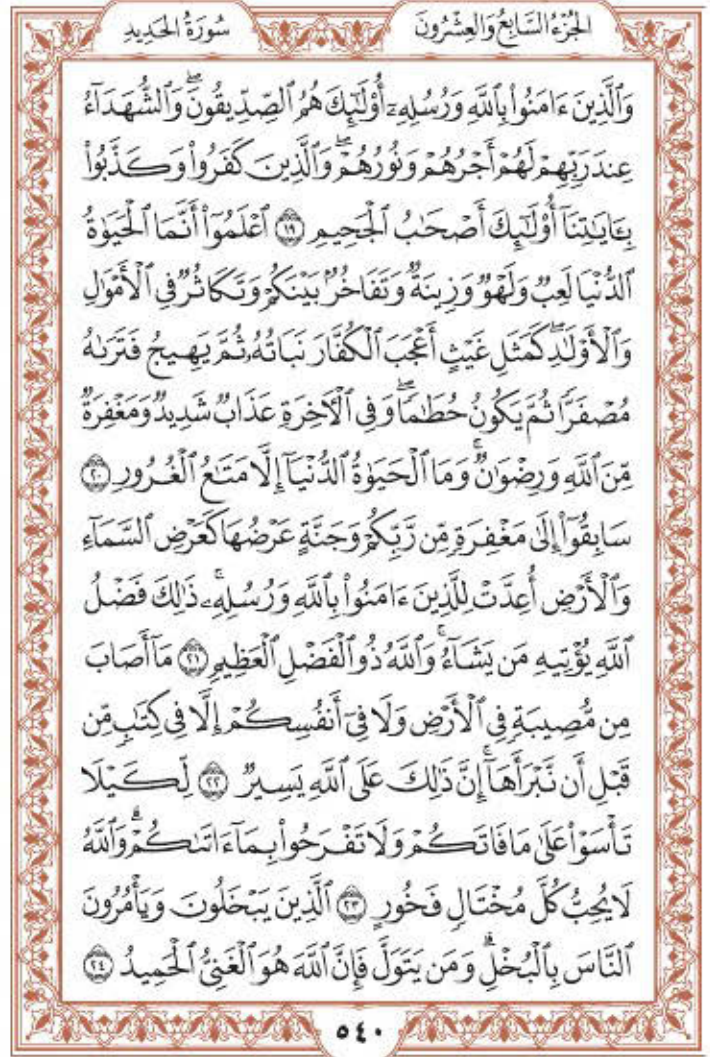 الجُزْءُ السَّابِعُ وَالعِشْرُونَ
سُورَةُ الحَدِيدِ
وَٱلَّذِينَ ءَامَنُوا۟ بِٱللَّهِ وَرُسُلِهِۦٓ أُو۟لَٰٓئِكَ هُمُ ٱلصِّدِّيقُونَۖ وَٱلشُّهَدَآءُ
عِندَ رَبِّهِمْ لَهُمْ أَجْرُهُمْ وَنُورُهُمْۖ وَٱلَّذِينَ كَفَرُوا۟ وَكَذَّبُوا۟
بِـَٔايَٰتِنَآ أُو۟لَٰٓئِكَ أَصْحَٰبُ ٱلْجَحِيمِ ١٩ ٱعْلَمُوٓا۟ أَنَّمَا ٱلْحَيَوٰةُ
ٱلدُّنْيَا لَعِبٌ وَلَهْوٌ وَزِينَةٌ وَتَفَاخُرٌۢ بَيْنَكُمْ وَتَكَاثُرٌ فِى ٱلْأَمْوَٰلِ
وَٱلْأَوْلَٰدِۖ كَمَثَلِ غَيْثٍ أَعْجَبَ ٱلْكُفَّارَ نَبَاتُهُۥ ثُمَّ يَهِيجُ فَتَرَىٰهُ
مُصْفَرًّا ثُمَّ يَكُونُ حُطَٰمًاۖ وَفِى ٱلْـَٔاخِرَةِ عَذَابٌ شَدِيدٌ وَمَغْفِرَةٌ
مِّنَ ٱللَّهِ وَرِضْوَٰنٌۚ وَمَا ٱلْحَيَوٰةُ ٱلدُّنْيَآ إِلَّا مَتَٰعُ ٱلْغُرُورِ ٢٠
سَابِقُوٓا۟ إِلَىٰ مَغْفِرَةٍ مِّن رَّبِّكُمْ وَجَنَّةٍ عَرْضُهَا كَعَرْضِ ٱلسَّمَآءِ
وَٱلْأَرْضِ أُعِدَّتْ لِلَّذِينَ ءَامَنُوا۟ بِٱللَّهِ وَرُسُلِهِۦۚ ذَٰلِكَ فَضْلُ
ٱللَّهِ يُؤْتِيهِ مَن يَشَآءُۚ وَٱللَّهُ ذُو ٱلْفَضْلِ ٱلْعَظِيمِ ٢١ مَآ أَصَابَ
مِن مُّصِيبَةٍ فِى ٱلْأَرْضِ وَلَا فِىٓ أَنفُسِكُمْ إِلَّا فِى كِتَٰبٍ مِّن
قَبْلِ أَن نَّبْرَأَهَآۚ إِنَّ ذَٰلِكَ عَلَى ٱللَّهِ يَسِيرٌ ٢٢ لِّكَيْلَا
تَأْسَوْا۟ عَلَىٰ مَا فَاتَكُمْ وَلَا تَفْرَحُوا۟ بِمَآ ءَاتَىٰكُمْۗ وَٱللَّهُ
لَا يُحِبُّ كُلَّ مُخْتَالٍ فَخُورٍ ٢٣ ٱلَّذِينَ يَبْخَلُونَ وَيَأْمُرُونَ
ٱلنَّاسَ بِٱلْبُخْلِۗ وَمَن يَتَوَلَّ فَإِنَّ ٱللَّهَ هُوَ ٱلْغَنِىُّ ٱلْحَمِيدُ ٢٤
٥٤٠